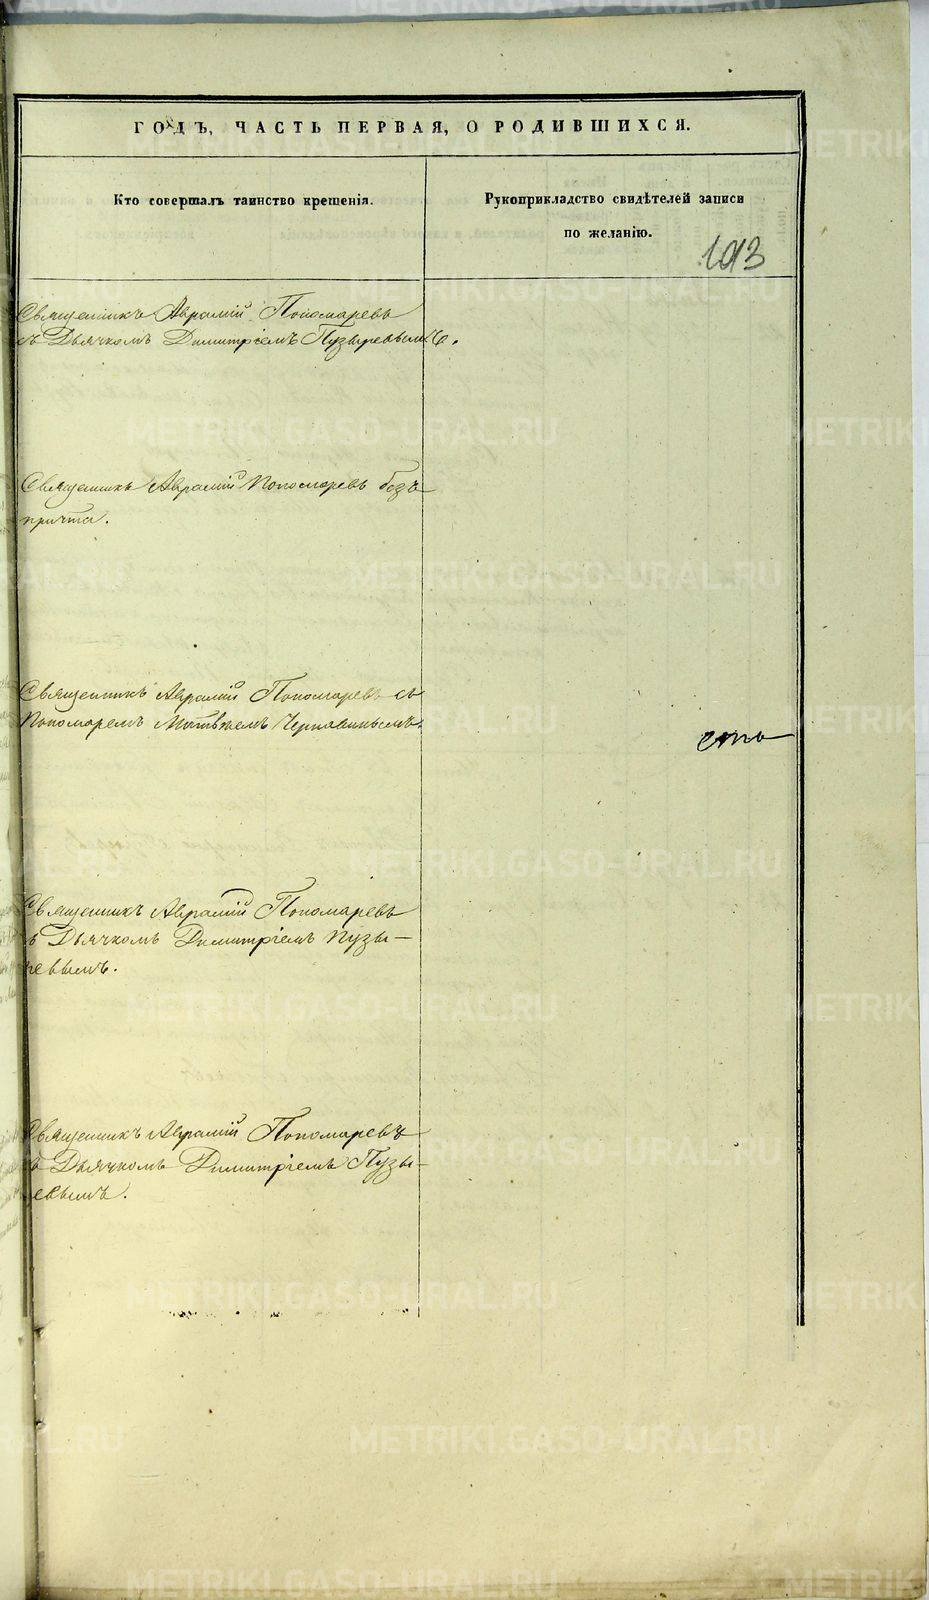 ГОДЪ, ЧАСТЬ ПЕРВАЯ, О РОДИВШИХСЯ.
Кто совершалъ таинство крещенія.
Рукоприкладство свидѣтелей записи
по желанію.
Священникъ Аврамій Пономаревъ
съ Дьячкомъ Димитріемъ Пузыревымъ.
Священникъ Аврамій Пономаревъ безъ
причта.
Священникъ Аврамій Пономаревъ съ
Пономаремъ Матвѣемъ
Священникъ Аврамій Пономаревъ
съ Дьячкомъ Димитріемъ Пузы-
ревымъ.
Священникъ Аврамій Пономаревъ
съ Дьячкомъ Димитріемъ Пузы-
ревымъ.
METRIKI.GASO-URAL.RU